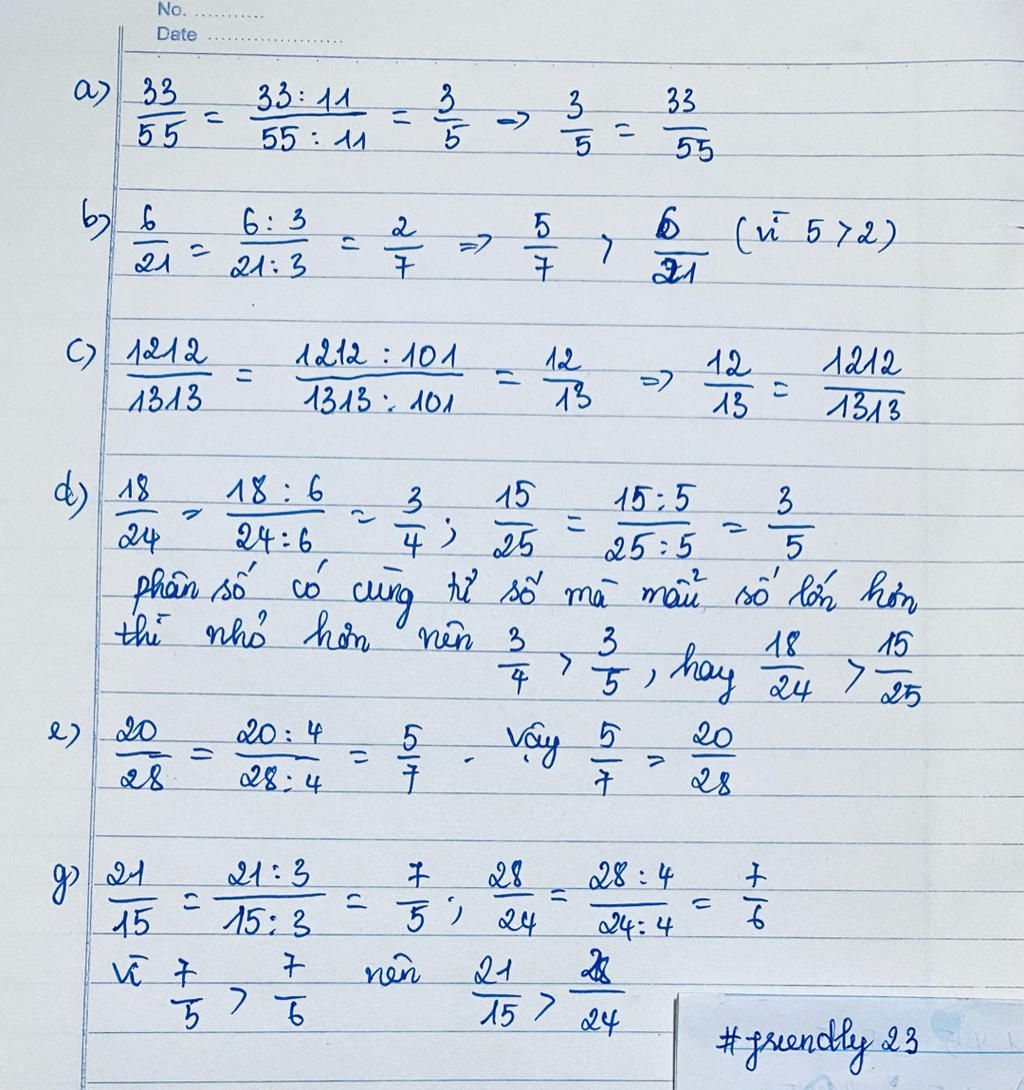 No. ...........
Date .....................
a) 33/55 = 33:11/55:11 = 3/5 → 3/5 = 33/55
b) 6/21 = 6:3/21:3 = 2/7 => 5/7 > 6/21 (vì 5>2)
c) 1212/1313 = 1212:101/1313:101 = 12/13 => 12/13 = 1212/1313
d) 18/24 = 18:6/24:6 = 3/4; 15/25 = 15:5/25:5 = 3/5
phân số có cùng tử số mà mẫu số lớn hơn
thì nhỏ hơn nên 3/4 > 3/5, hay 18/24 > 15/25
e) 20/28 = 20:4/28:4 = 5/7. Vậy 5/7 = 20/28
g) 21/15 = 21:3/15:3 = 7/5; 28/24 = 28:4/24:4 = 7/6
vì 7/5 > 7/6 nên 21/15 > 28/24
#friendly 23